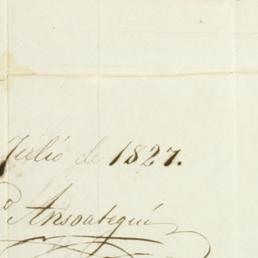 Julió de 1827.
Ansoategui